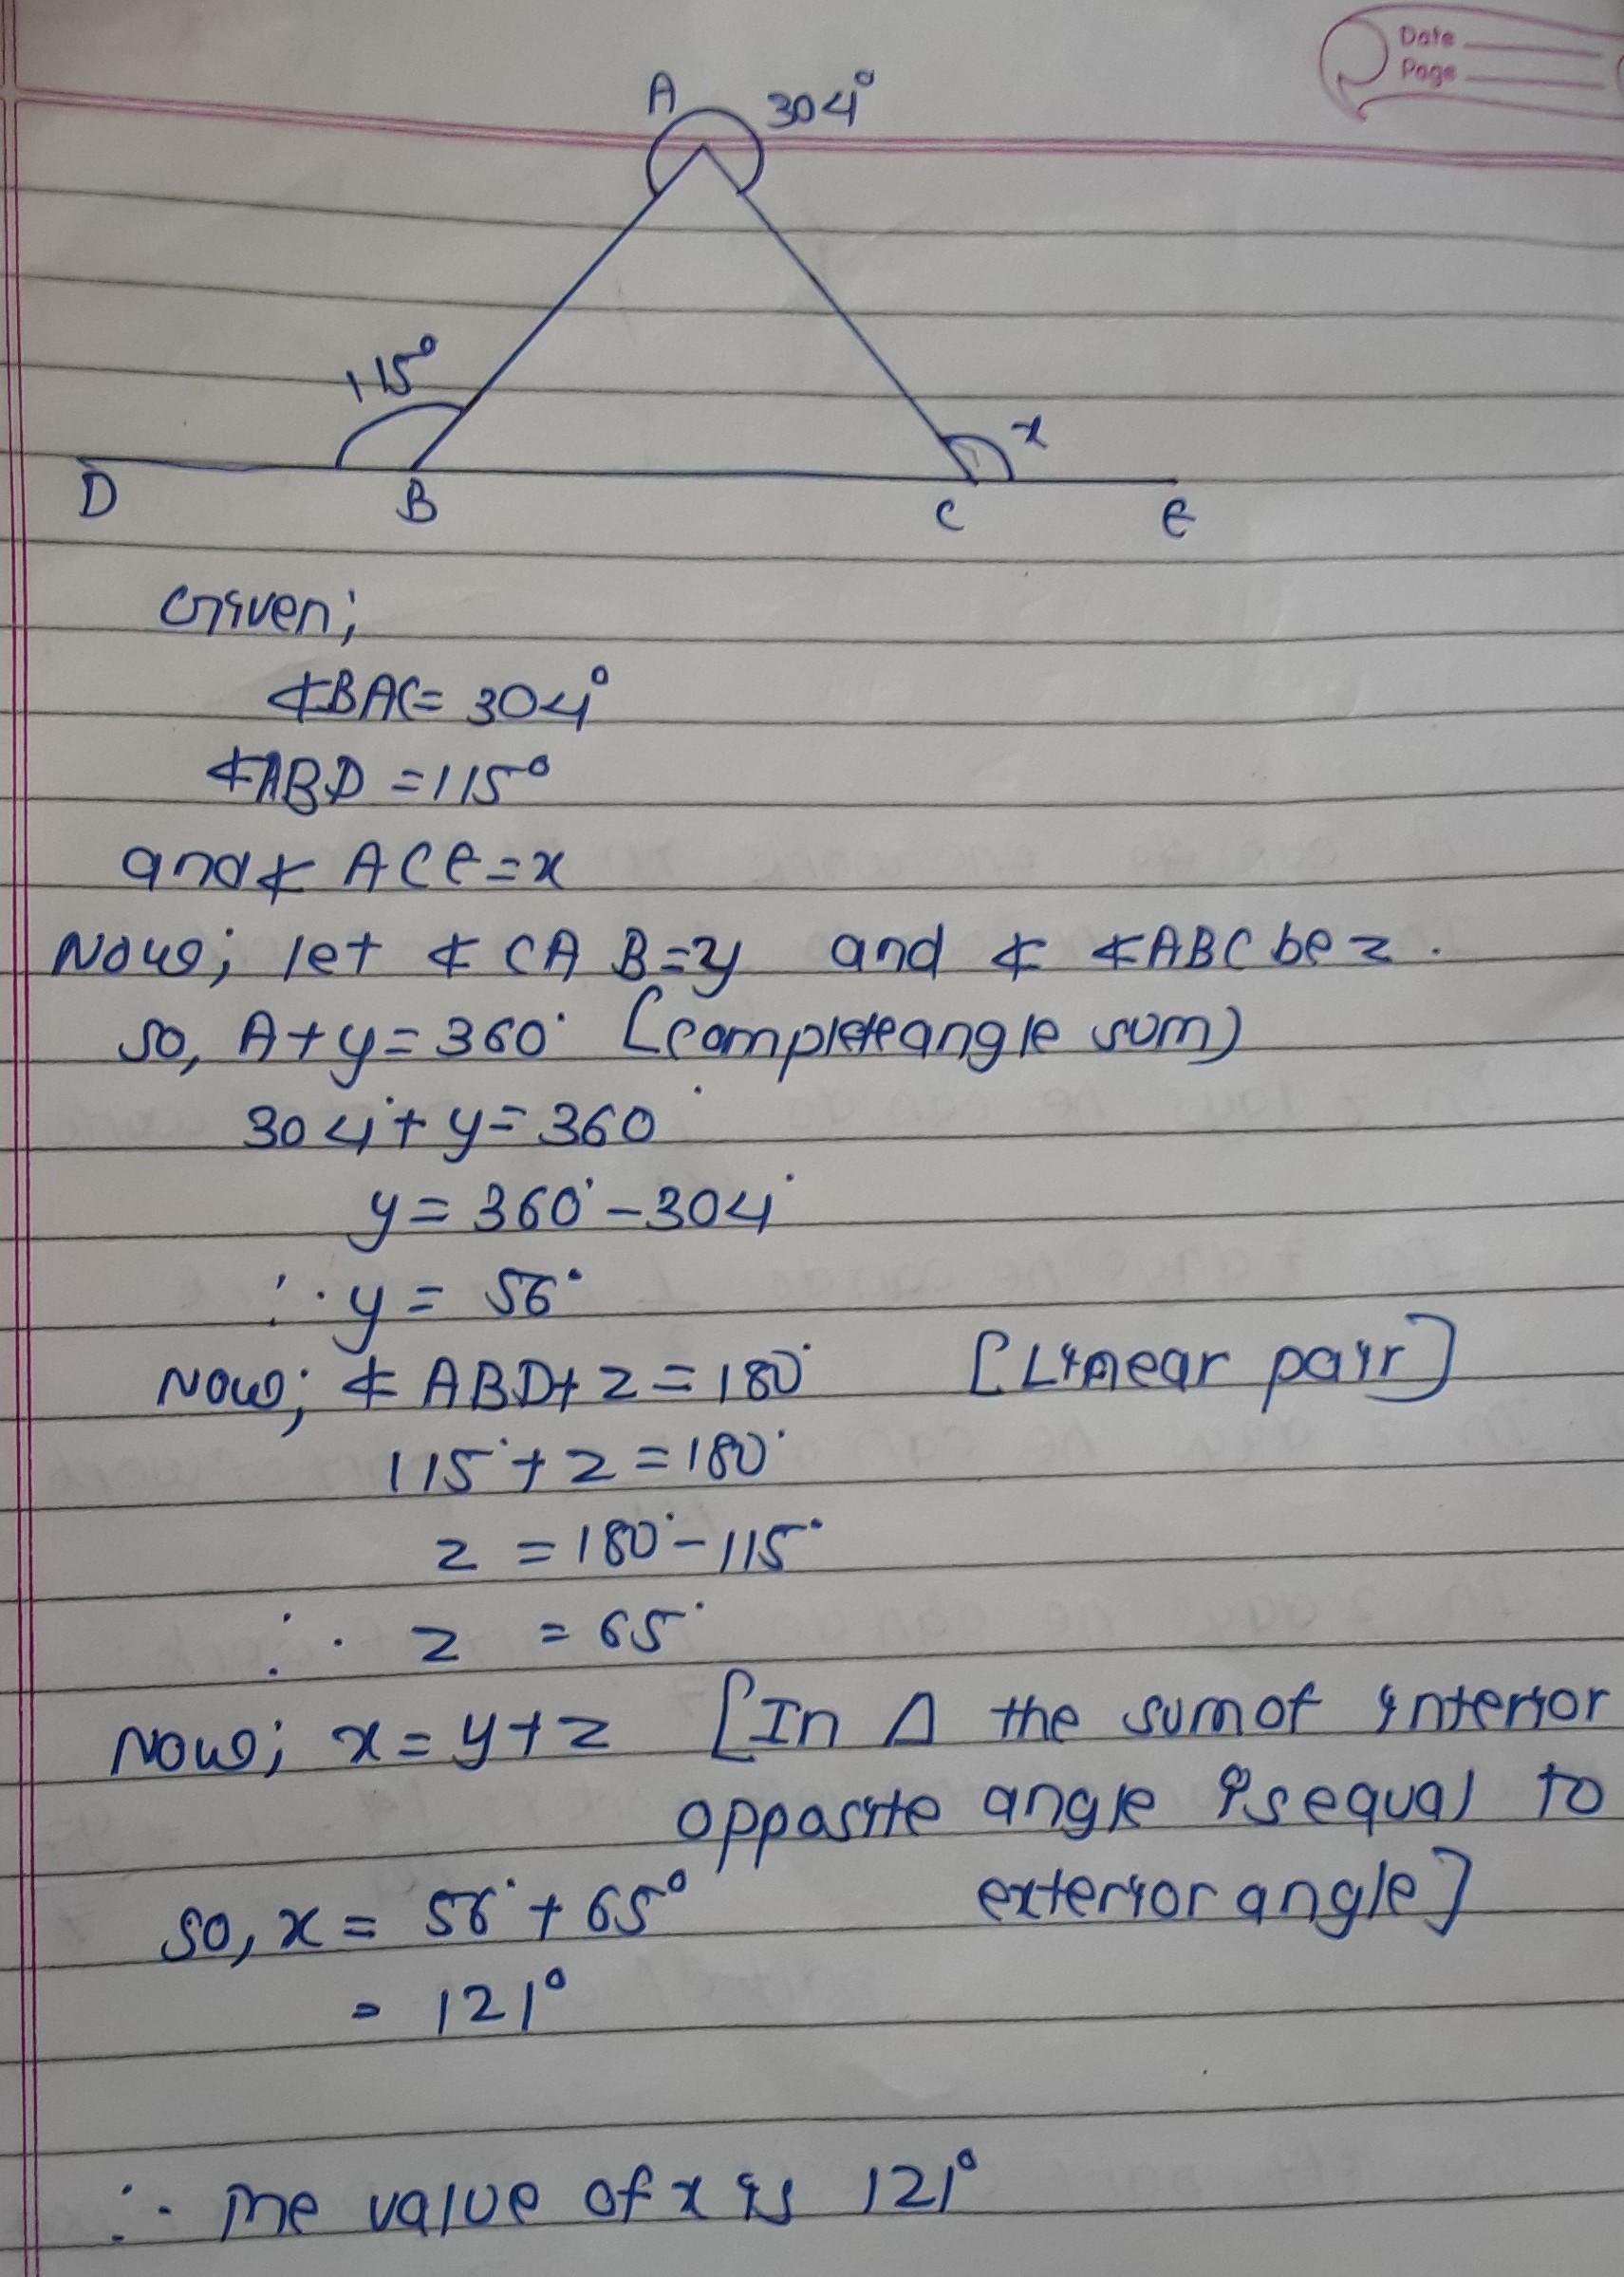 Date
Page
A 304°
115°
x
D B C E
Given;
∡BAC = 304°
∡ABD = 115°
and ∡ ACE = x
Now; let ∡ CA B = y and ∡ ∡ABC be z.
so, A + y = 360° [complete angle sum)
304° + y = 360°
y = 360° - 304°
∴ y = 56°
Now; ∡ ABD + z = 180° [Linear pair]
115° + z = 180°
z = 180° - 115°
∴ z = 65°
Now; x = y + z [In △ the sum of interior
opposite angle is equal to
exterior angle]
so, x = 56° + 65°
= 121°
∴ The value of x is 121°